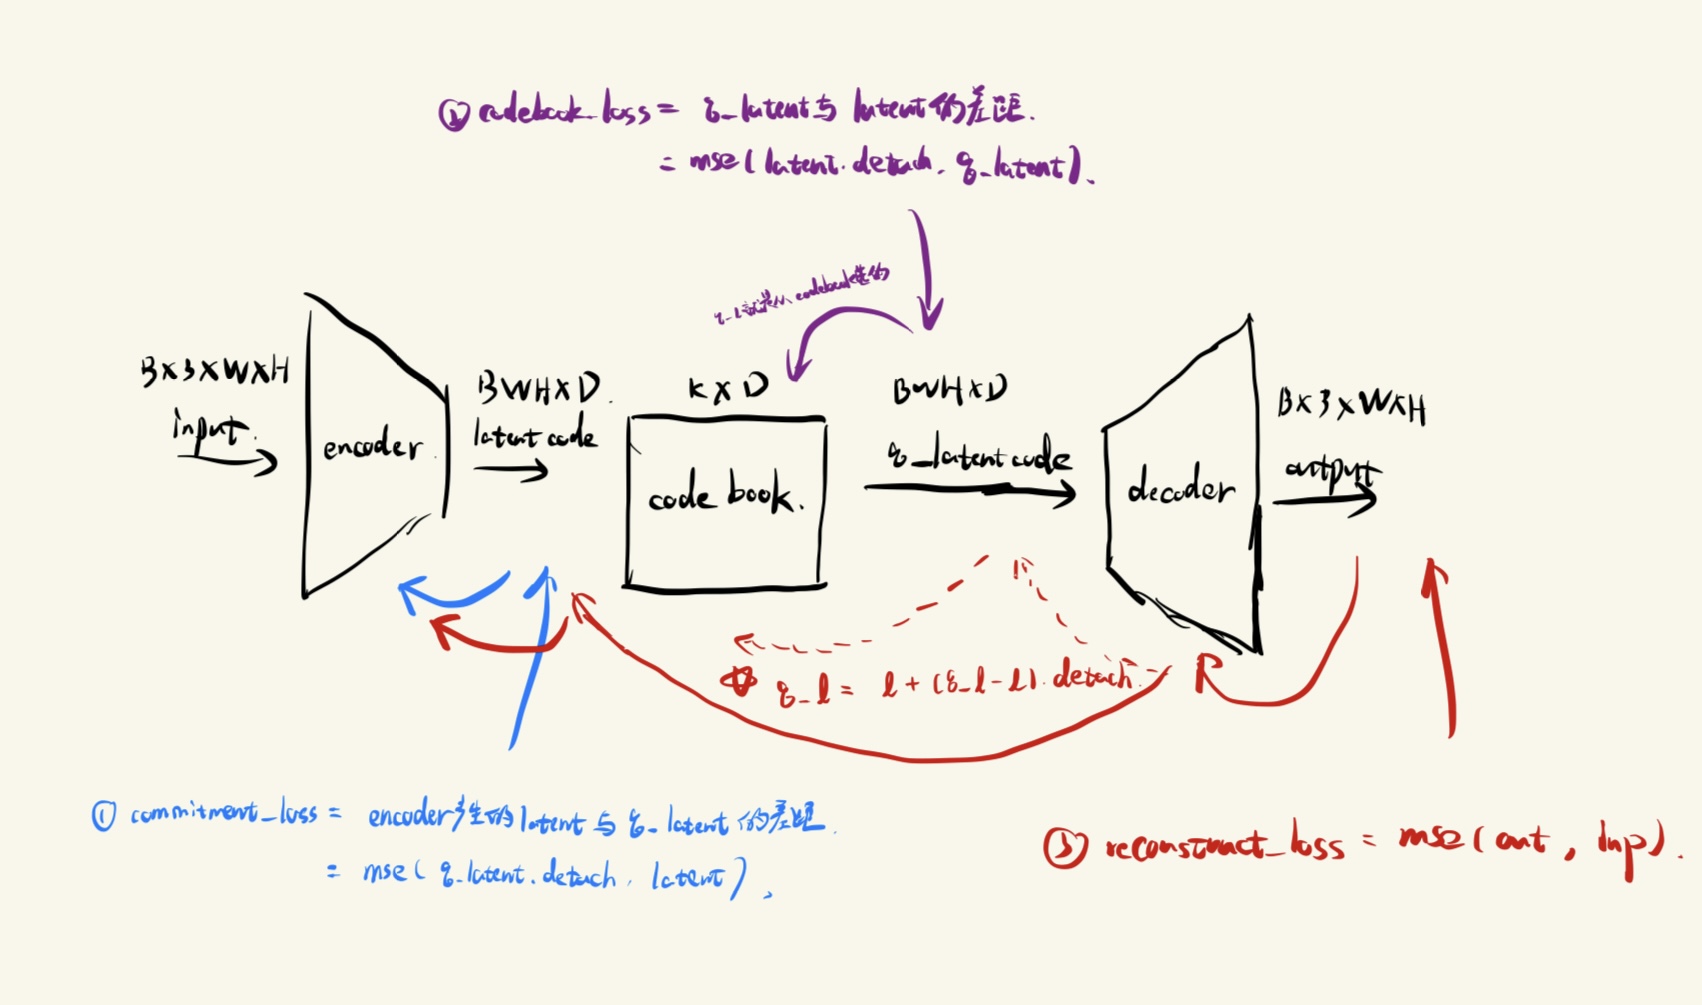 ② codebook_loss = q_latent与latent的差距.
= mse(latent.detach, q_latent).
q_l就是从codebook选的
B×3×W×H
input.
encoder.
BWH×D.
latent code
K×D
code book.
BWH×D
q_latent code
decoder
B×3×W×H
output
q_l = l + (q_l - l).detach.
① commitment_loss = encoder产生的latent与q_latent的差距.
= mse(q_latent.detach, latent),
③ reconstruct_loss = mse(out, inp).